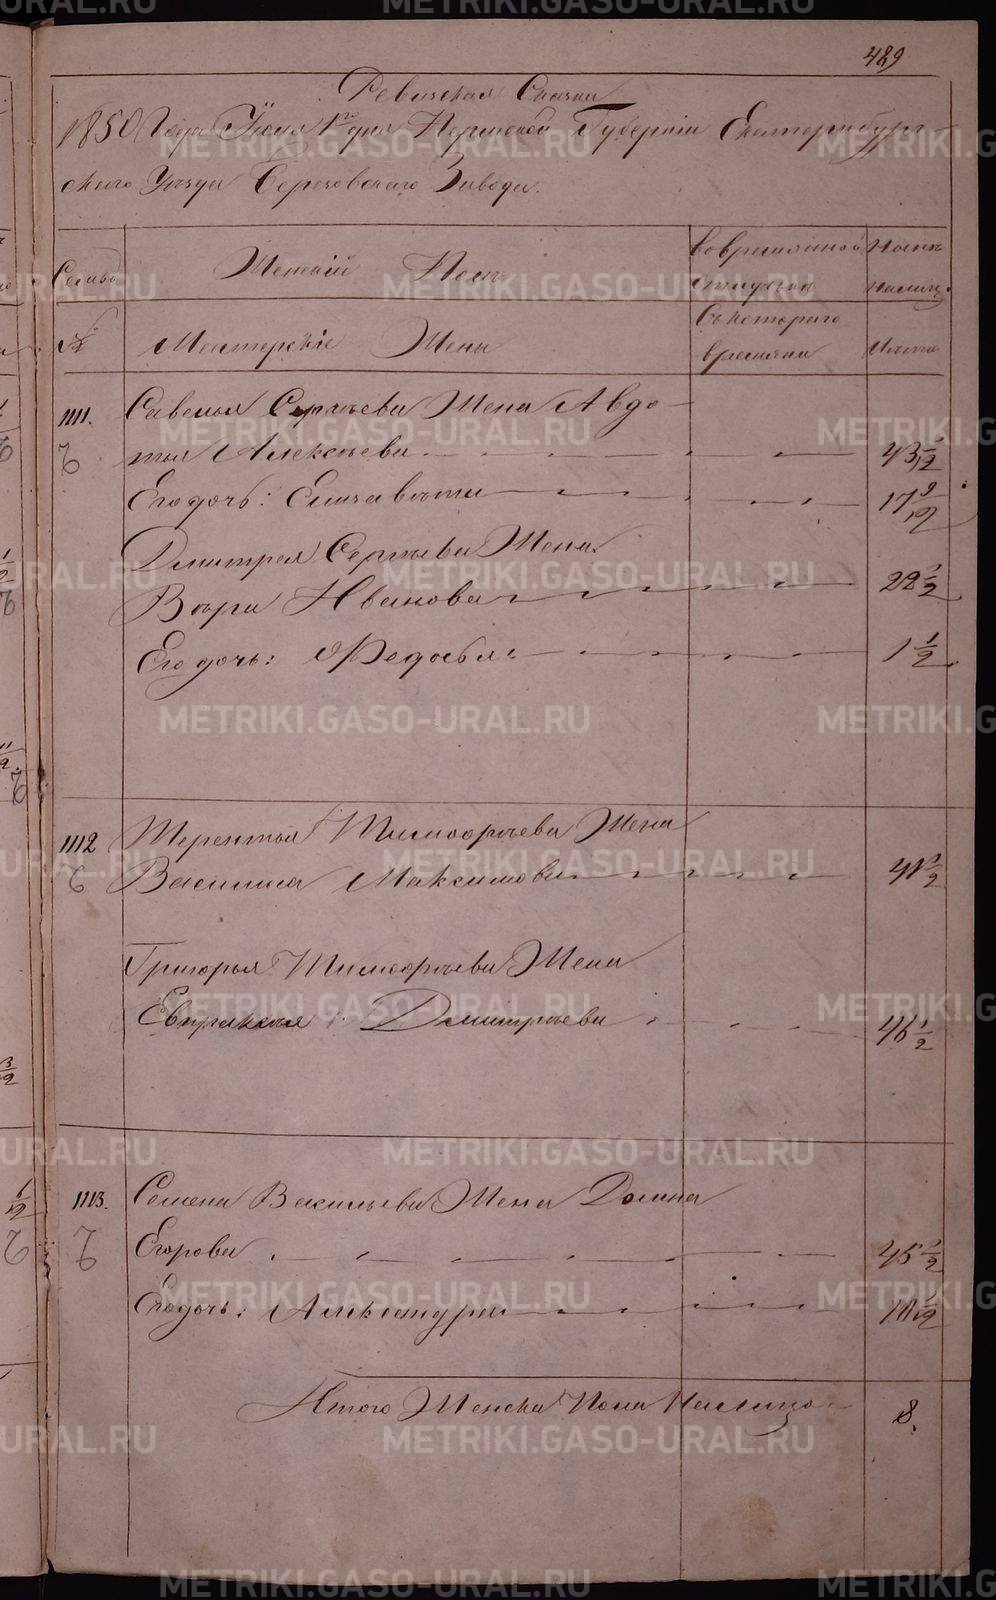 489
Ревизская Сказка
1850 Года Июня 1го дня Пермской Губерніи Екатеринбург
скаго Уезда Березовскаго Завода.
Семьи Женскій Полъ Во временной отлучкѣ Нынѣ на лицо
№ Мастерскіе Жены Съ котораго времени Лѣта
1111. Савелья Сергѣева Жена Авдо
тья Алексѣева 43 1/2
Его дочь: Елизавета 17 9/12
Дмитрея Сергѣева Жена
Вѣра Иванова 22 1/2
Его дочь: Федосья: 1 1/2
1112 Терентья Тимофѣева Жена
Василиса Максимова
Григорья Тимофѣева Жена
Евпраксья Дмитрѣева 46 1/2
1113. Семена Васильева Жена Домна
Егорова 45 1/2
Его дочь: Александра
Итого Женска Пола На лицо 8.
METRIKI.GASO-URAL.RU